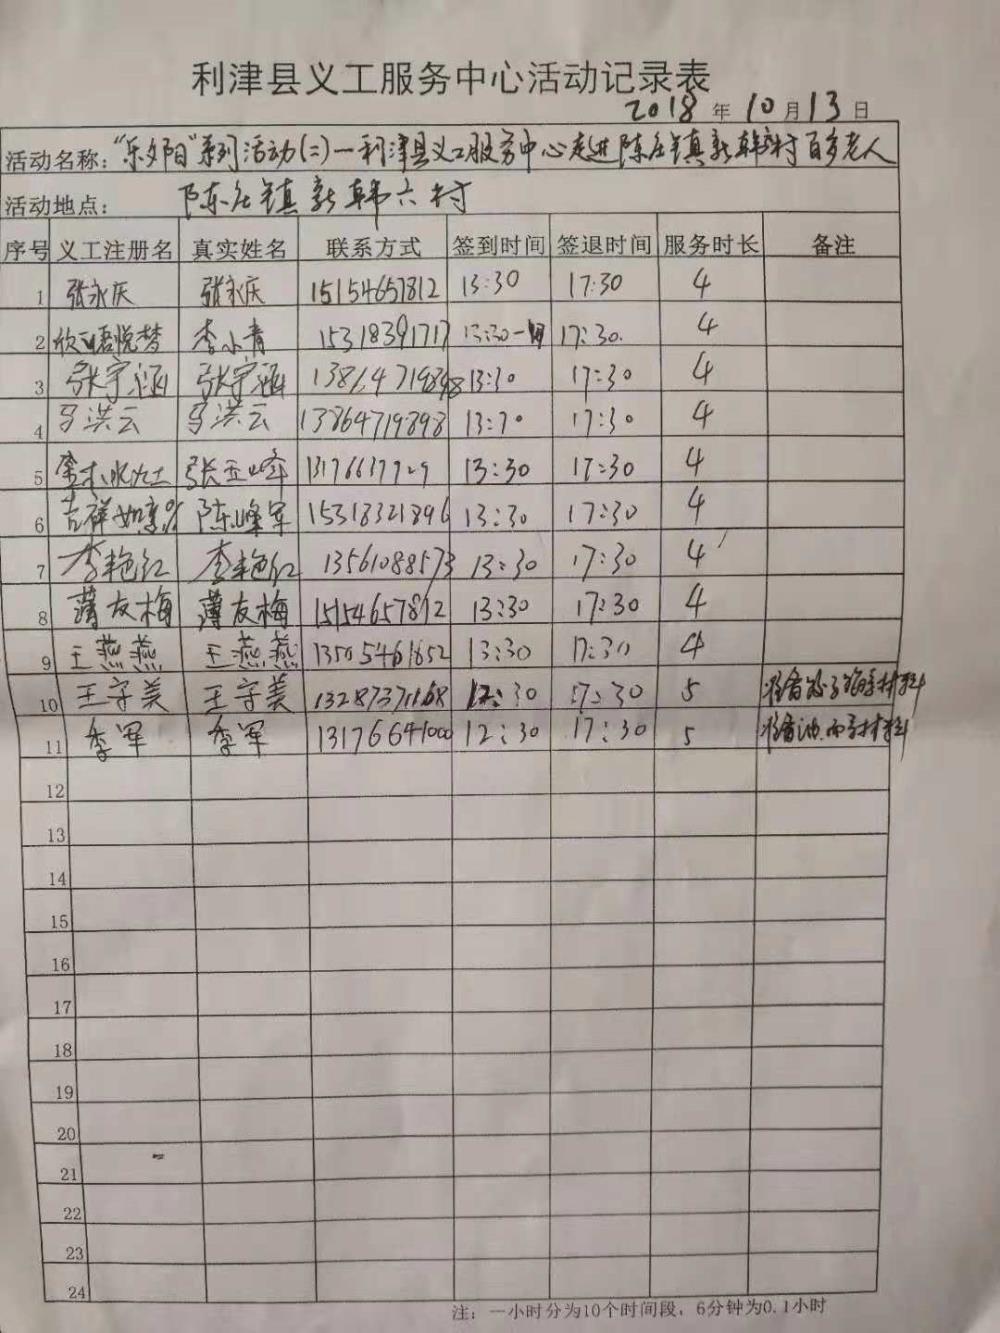 利津县义工服务中心活动记录表
2018 年 10 月 13 日
活动名称：“乐夕阳”系列活动(二)—利津县义工服务中心走进陈庄镇新韩六村百岁老人
活动地点： 陈庄镇新韩六村
序号 义工注册名 真实姓名 联系方式 签到时间 签退时间 服务时长 备注
1 张永庆 张永庆 15154657812 13:30 17:30 4
2 李小青 15318391717 13:30 17:30. 4
3 张宇涵 张宇涵 13:30 17:30 4
4 马洪云 马洪云 13864719898 13:30 17:30 4
5 张玉峰 13:30 17:30 4
6 吉祥如意 陈峰军 15318321896 13:30 17:30 4
7 李艳红 李艳红 13561088573 13:30 17:30 4
8 薄友梅 薄友梅 15154657812 13:30 17:30 4
9 王燕燕 王燕燕 13505461652 13:30 17:30 4
10 王守美 王守美 13287371168 12:30 17:30 5
11 李军 李军 13176641000 12:30 17:30 5
12
13
14
15
16
17
18
19
20
21
22
23
24
注：一小时分为10个时间段，6分钟为0.1小时